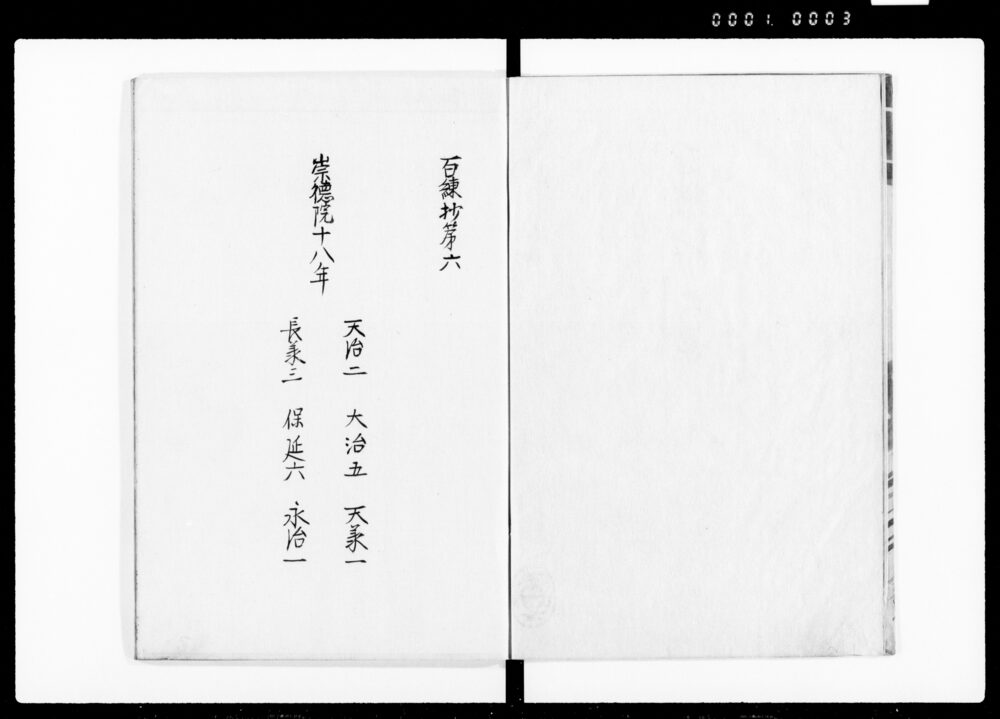 0001. 0003
百練抄第六
崇德院十八年
天治二 大治五 天承一
長承三 保延六 永治一